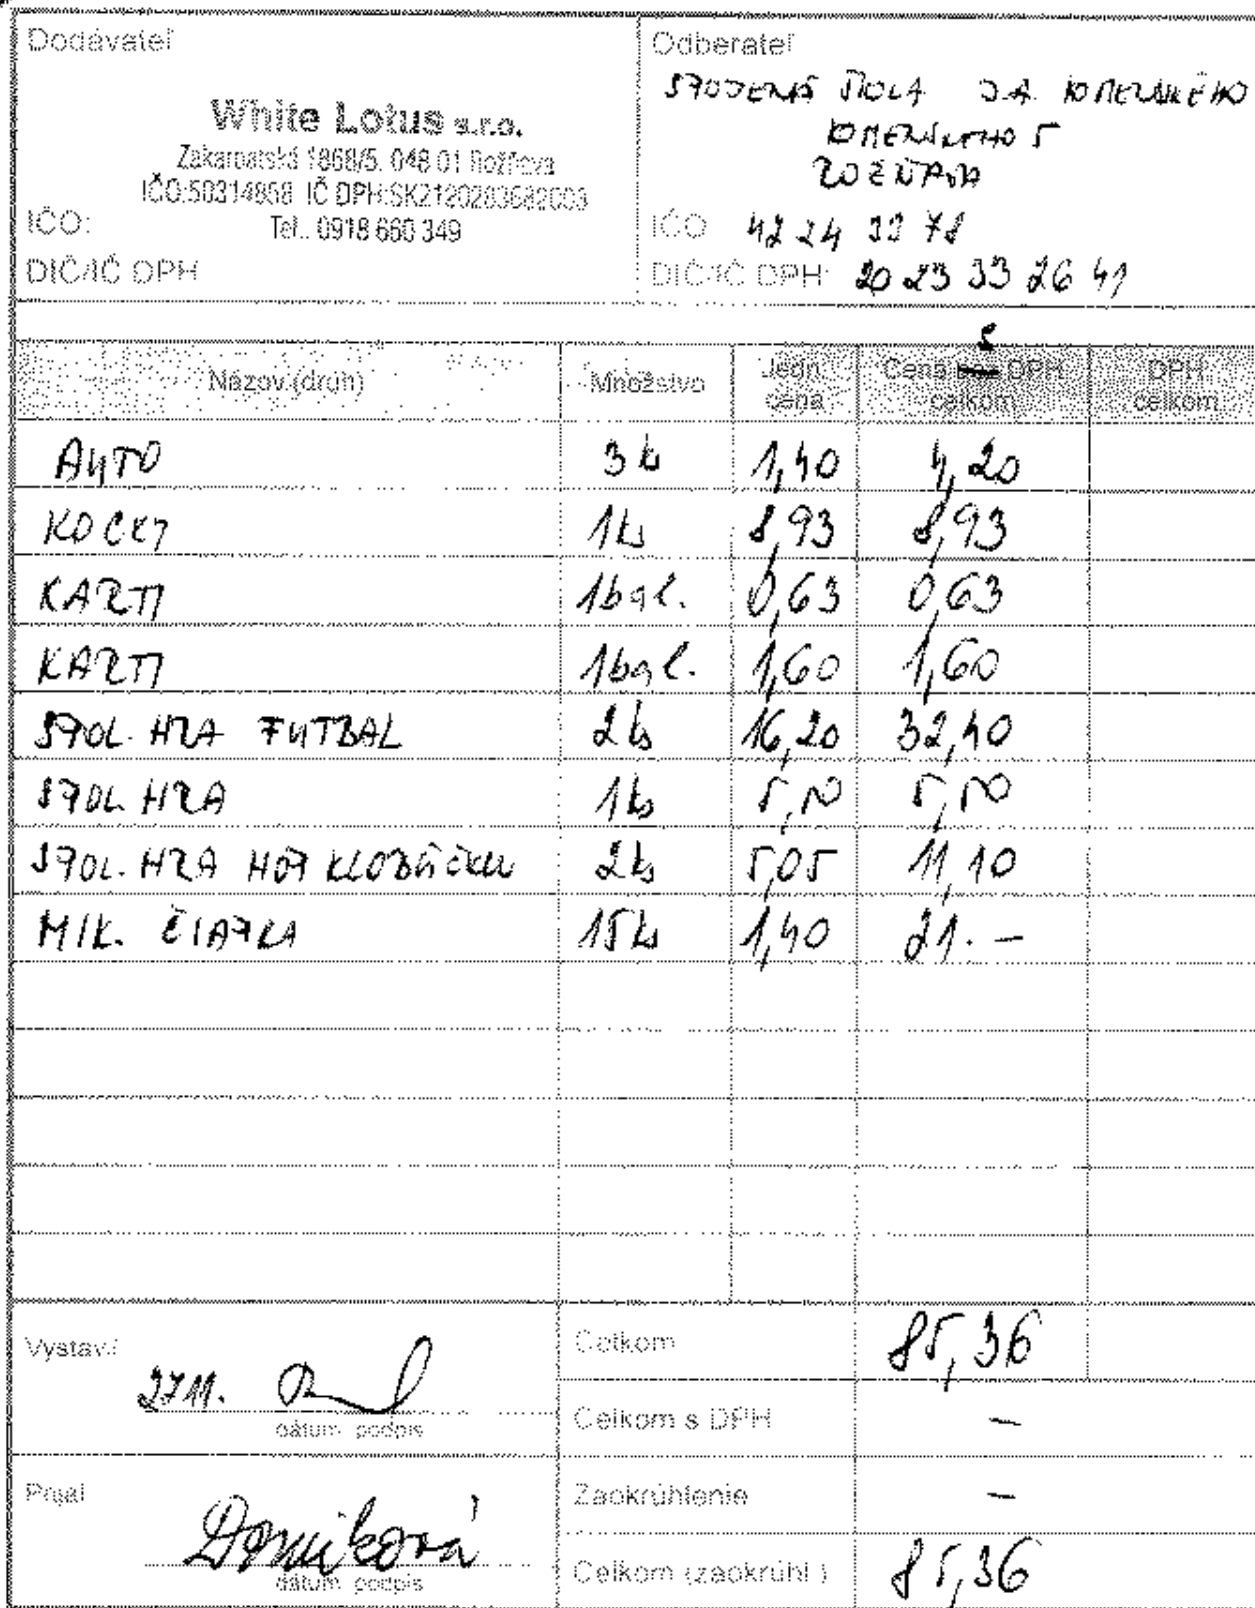 Dodávateľ
White Lotus s.r.o.
Zakarpatská 1868/5, 048 01 Rožňava
IČO:50314858 IČ DPH:SK2120283682003
IČO:
Tel.: 0918 660 349
DIČ/IČ DPH
Odberateľ
ŠKOLA J.A. KOMENSKÉHO
KOMENSKÉHO 5
ROŽŇAVA
IČO 42 24 33 78
DIČ/IČ DPH: 20 23 33 26 41
Názov (druh) Množstvo Jedn. cena Cena s DPH celkom DPH celkom
AUTO 3 ks 1,40 4,20
KOCKY 1 ks 8,93 8,93
KARTY 1 bal. 0,63 0,63
KARTY 1 bal. 1,60 1,60
STOL. HRA FUTBAL 2 ks 16,20 32,40
STOL. HRA 1 ks 5,50 5,50
STOL. HRA HOP KLOBÚČKU 2 ks 5,05 11,10
MIK. ČIAPKA 15 ks 1,40 21.-
Vystavil
27.11.
dátum podpis
Celkom 85,36
Celkom s DPH -
Prijal
Domiková
dátum podpis
Zaokrúhlenie -
Celkom (zaokrúhl.) 85,36